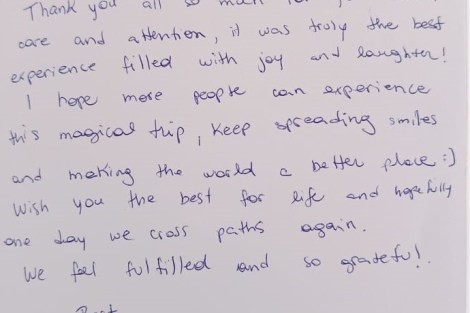 Thank you all so much for
care and attention, it was truly the best
experience filled with joy and laughter!
I hope more people can experience
this magical trip, keep spreading smiles
and making the world a better place :)
Wish you the best for life and hopefully
one day we cross paths again.
We feel fulfilled and so grateful!